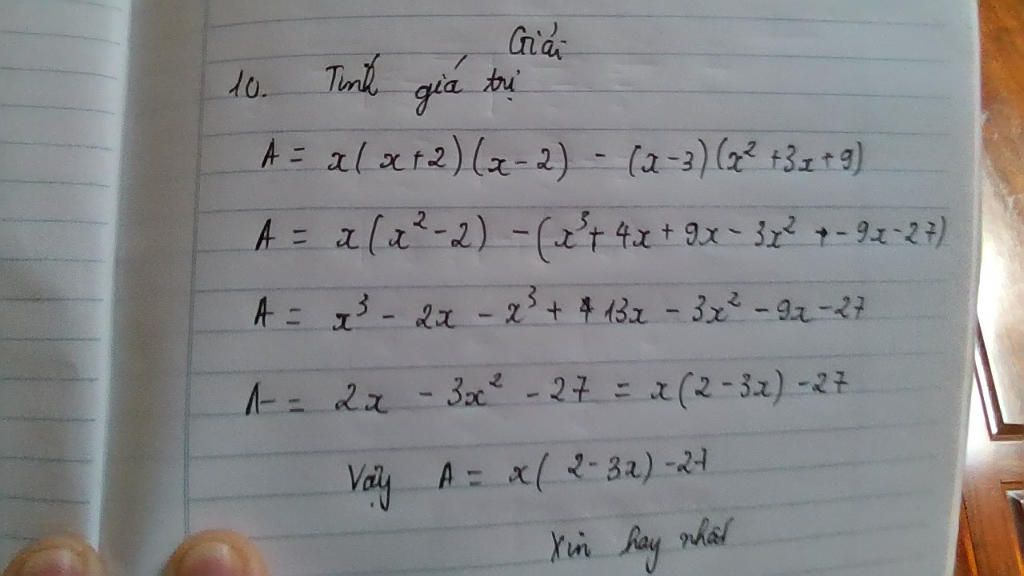 Giải
10. Tính giá trị
A = x(x+2)(x-2) - (x-3)(x² +3x+9)
A = x(x²-2) - (x³+ 4x + 9x - 3x² - 9x-27)
A = x³ - 2x - x³ + 13x - 3x² - 9x - 27
A = 2x - 3x² - 27 = x(2-3x) -27
Vậy A = x( 2-3x) -27
Xin hay nhất